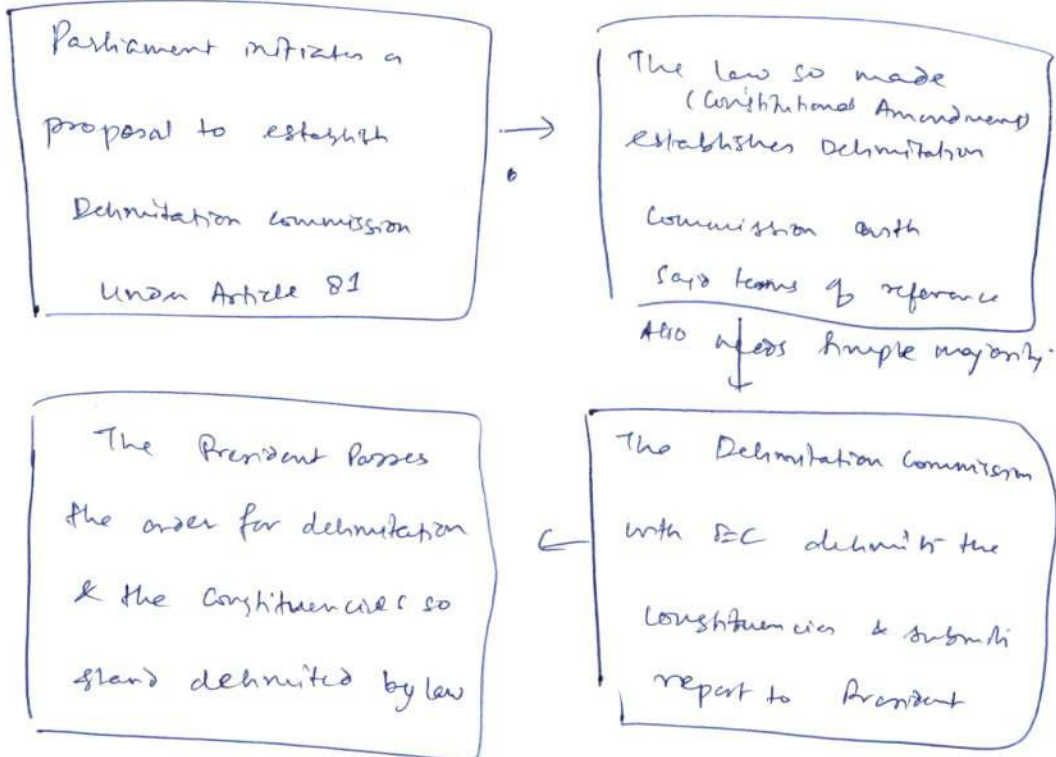 Parliament initiates a
proposal to establish
Delimitation commission
Under Article 81
The law so made
(Constitutional Amendment)
establishes Delimitation
Commission with
said terms of reference
Also needs simple majority.
The Delimitation Commission
with delimits the
constituencies & submits
report to President
The President Passes
the order for delimitation
& the Constituencies so
stand delimited by law